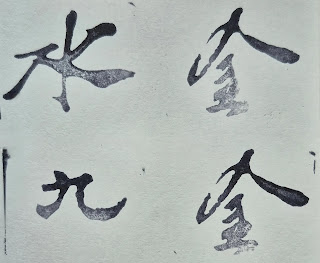 水金
九金